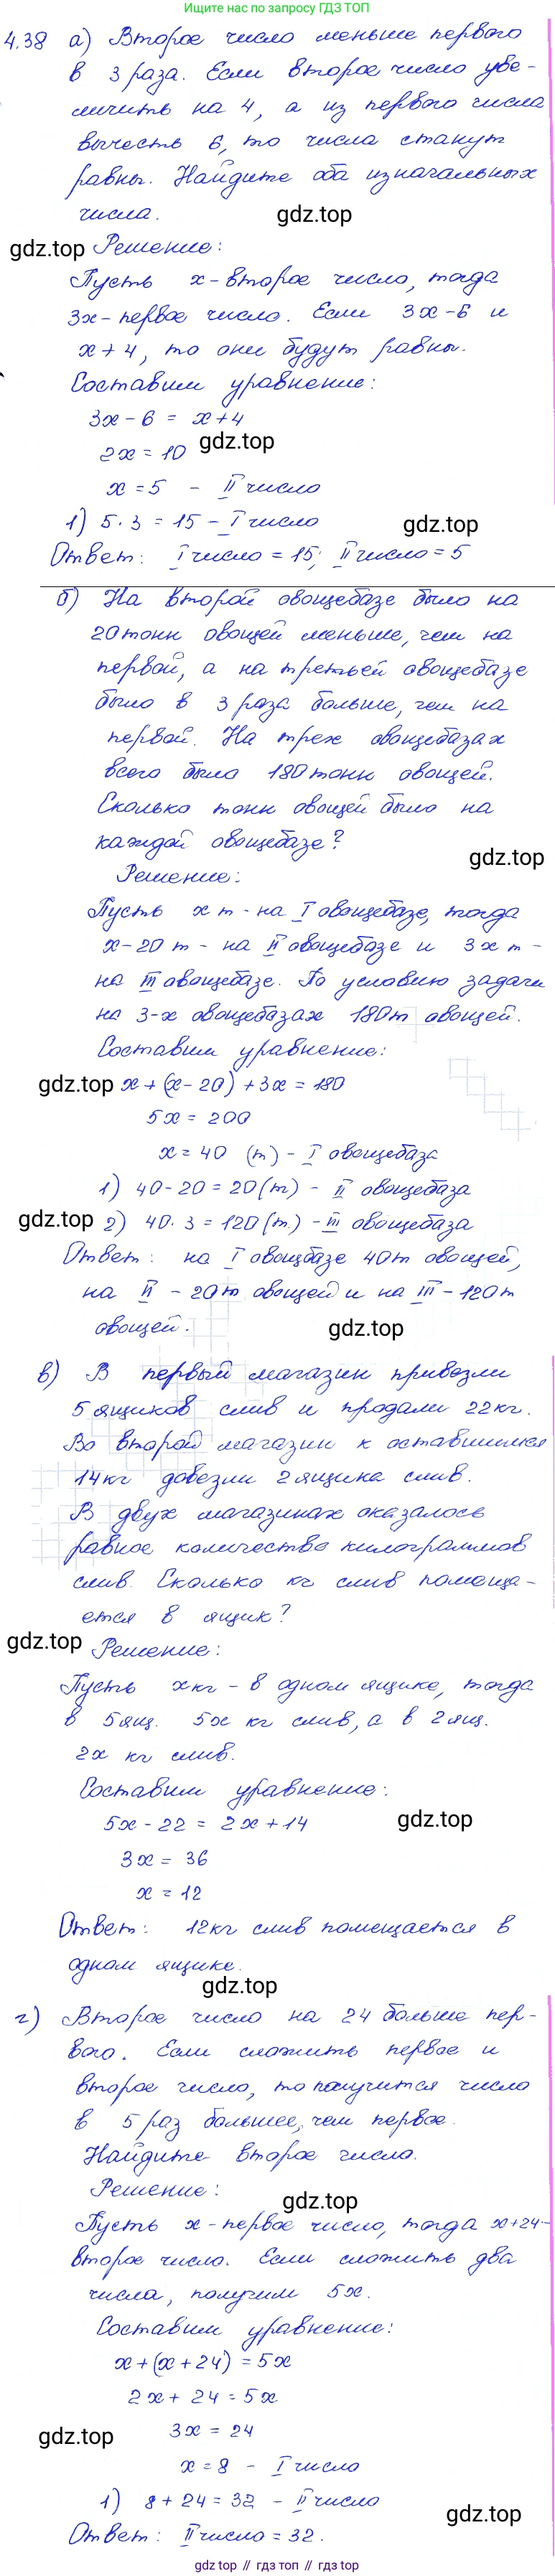 Ищите нас по запросу ГДЗ ТОП
4.38 а) Второе число меньше первого
в 3 раза. Если второе число уве-
личить на 4, а из первого числа
вычесть 6, то числа станут
равны. Найдите оба изначальных
числа.
gdz.top
gdz.top Решение:
Пусть x - второе число, тогда
3x - первое число. Если 3x - 6 и
x + 4, то они будут равны.
Составим уравнение:
3x - 6 = x + 4
2x = 10 gdz.top
x = 5 - II число
1) 5 · 3 = 15 - I число gdz.top
Ответ: I число = 15; II число = 5
б) На второй овощебазе было на
20 тонн овощей меньше, чем на
первой, а на третьей овощебазе
было в 3 раза больше, чем на
первой. На трех овощебазах
всего было 180 тонн овощей.
Сколько тонн овощей было на
каждой овощебазе?
gdz.top
Решение:
Пусть x т - на I овощебазе, тогда
x - 20 т - на II овощебазе и 3x т -
на III овощебазе. По условию задачи
на 3-х овощебазах 180 т овощей.
Составим уравнение:
gdz.top x + (x - 20) + 3x = 180
5x = 200
x = 40 (т) - I овощебаза
1) 40 - 20 = 20 (т) - II овощебаза
gdz.top 2) 40 · 3 = 120 (т) - III овощебаза
Ответ: на I овощбазе 40 т овощей,
на II - 20 т овощей и на III - 120 т
овощей. gdz.top
в) В первый магазин привезли
5 ящиков слив и продали 22 кг.
Во второй магазин к оставшимся
14 кг довезли 2 ящика слив.
В двух магазинах оказалось
равное количество килограммов
слив. Сколько кг слив помеща-
ется в ящик?
gdz.top Решение:
Пусть x кг - в одном ящике, тогда
в 5 ящ. 5x кг слив, а в 2 ящ.
2x кг слив.
Составим уравнение:
5x - 22 = 2x + 14 gdz.top
3x = 36
x = 12
Ответ: 12 кг слив помещается в
одном ящике.
gdz.top
г) Второе число на 24 больше пер-
вого. Если сложить первое и
второе число, то получится число
в 5 раз большее, чем первое.
Найдите второе число.
Решение:
gdz.top
Пусть x - первое число, тогда x + 24 -
второе число. Если сложить два
числа, получим 5x.
Составим уравнение:
x + (x + 24) = 5x
2x + 24 = 5x
gdz.top 3x = 24
x = 8 - I число
1) 8 + 24 = 32 - II число
gdz.top
Ответ: II число = 32.
gdz.top // гдз топ // gdz.top // гдз топ